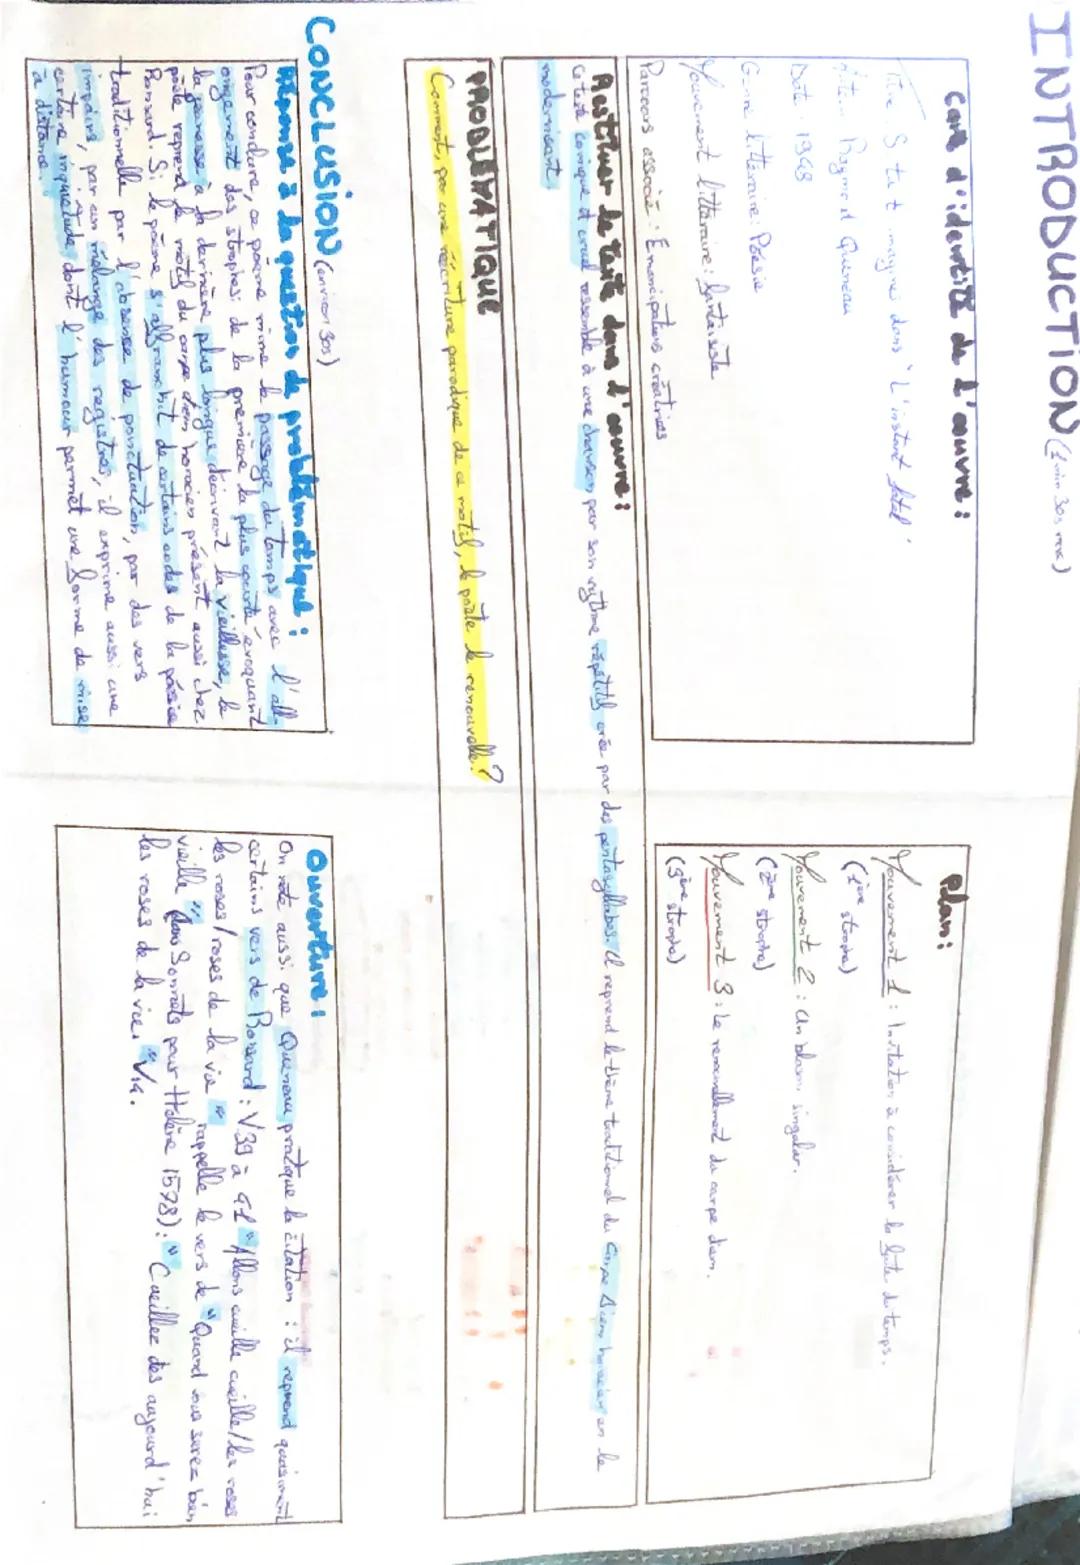 INTRODUCTION (1 min 30s max)
Carte d'identité de l'œuvre :
Titre Si tu t'imagines dans "L'instant fatal"
Raymond Queneau
Date : 1948
Genre littéraire : Poésie
Mouvement littéraire : fantaisiste
Parcours associé : Emancipations créatrices
Plan :
Mouvement 1 : Invitation à considérer la fuite du temps.
(1ère strophe)
Mouvement 2 : Un blason singulier.
(2ème strophe)
Mouvement 3 : Le renouvellement du carpe diem.
(3ème strophe)
Restituer le texte dans l'œuvre :
Ce texte comique et cruel ressemble à une chanson par son rythme répétitif crée par des pentasyllabes. Il reprend le thème traditionnel du Carpe diem horacien en le
modernisant
PROBLÉMATIQUE
Comment, par une réécriture parodique de ce motif, le poète le renouvelle ?
CONCLUSION (environ 30s)
Réponse à la question de problématique :
Pour conclure, ce poème mime le passage du temps avec l'all-
ongement des strophes : de la première la plus courte évoquant
la jeunesse à la dernière plus longue décrivant la vieillesse, le
poète reprend le motif du carpe diem horacien présent aussi chez
Ronsard. Si le poème s'affranchit de certains codes de la poésie
traditionnelle par l'absence de ponctuation, par des vers
impairs, par un mélange des registres, il exprime aussi une
certaine inquiétude dont l'humour permet une forme de mise
à distance.
Ouverture :
On note aussi que Queneau pratique la citation : il reprend quasiment
certains vers de Ronsard : V39 à 41 "Allons cueille cueille / les roses
les roses / roses de la vie" rappelle le vers de "Quand vous serez bien
vieille" (dans Sonnets pour Hélène 1578) : "Cueillez dès aujourd'hui
les roses de la vie." V14.